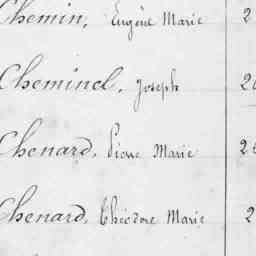 Chemin, Eugène Marie 2
Cheminel, Joseph 2
Chenard, Pierre Marie 2
Chenard, Théodore Marie 2